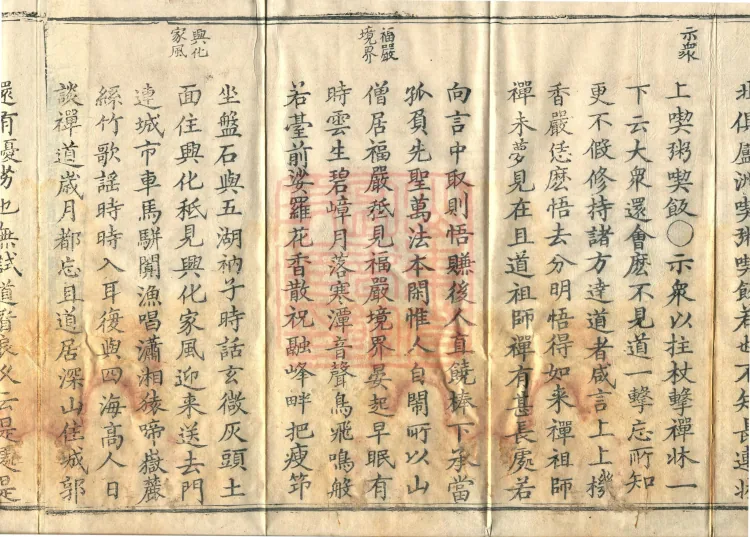 北俱盧洲喫粥喫飯若也不知長連牀
示衆
上喫粥喫飯○示衆以拄杖擊禪牀一
下云大衆還會麽不見道一擊忘所知
更不假修持諸方達道者咸言上上機
香嚴恁麽悟去分明悟得如來禪祖師
禪未夢見在且道祖師禪有甚長處若
向言中取則悟賺後人直饒棒下承當
孤負先聖萬法本閑惟人自鬧所以山
福嚴
境界
僧居福嚴秪見福嚴境界晏起早眠有
時雲生碧嶂月落寒潭音聲鳥飛鳴般
若臺前娑羅花香散祝融峰畔把瘦筇
坐盤石與五湖衲子時話玄微灰頭土
興化
家風
面住興化秪見興化家風迎來送去門
連城市車馬駢闐漁唱瀟湘猿啼嶽麓
絲竹歌謠時時入耳復與四海高人日
談禪道歲月都忘且道居深山住城郭
還有憂勞也無試道看良久云是處是